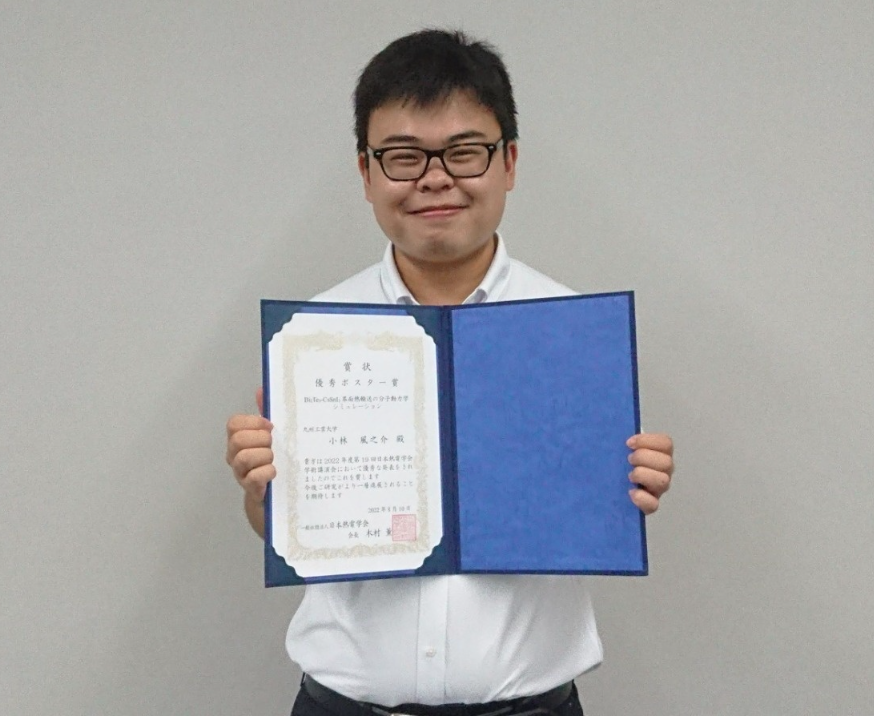 賞 状
優 秀 ポ ス タ ー 賞
界面熱輸送の分子動力学
シミュレーション
九州工業大学
小林 風之介 殿
貴方は2022年度第18回日本熱電学会
学術講演会において優秀な発表をされ
ましたのでこれを賞します
今後ご研究がより一層進展されること
を期待します
2022年8月10日
一般社団法人日本熱電学会
会長 木村 薫